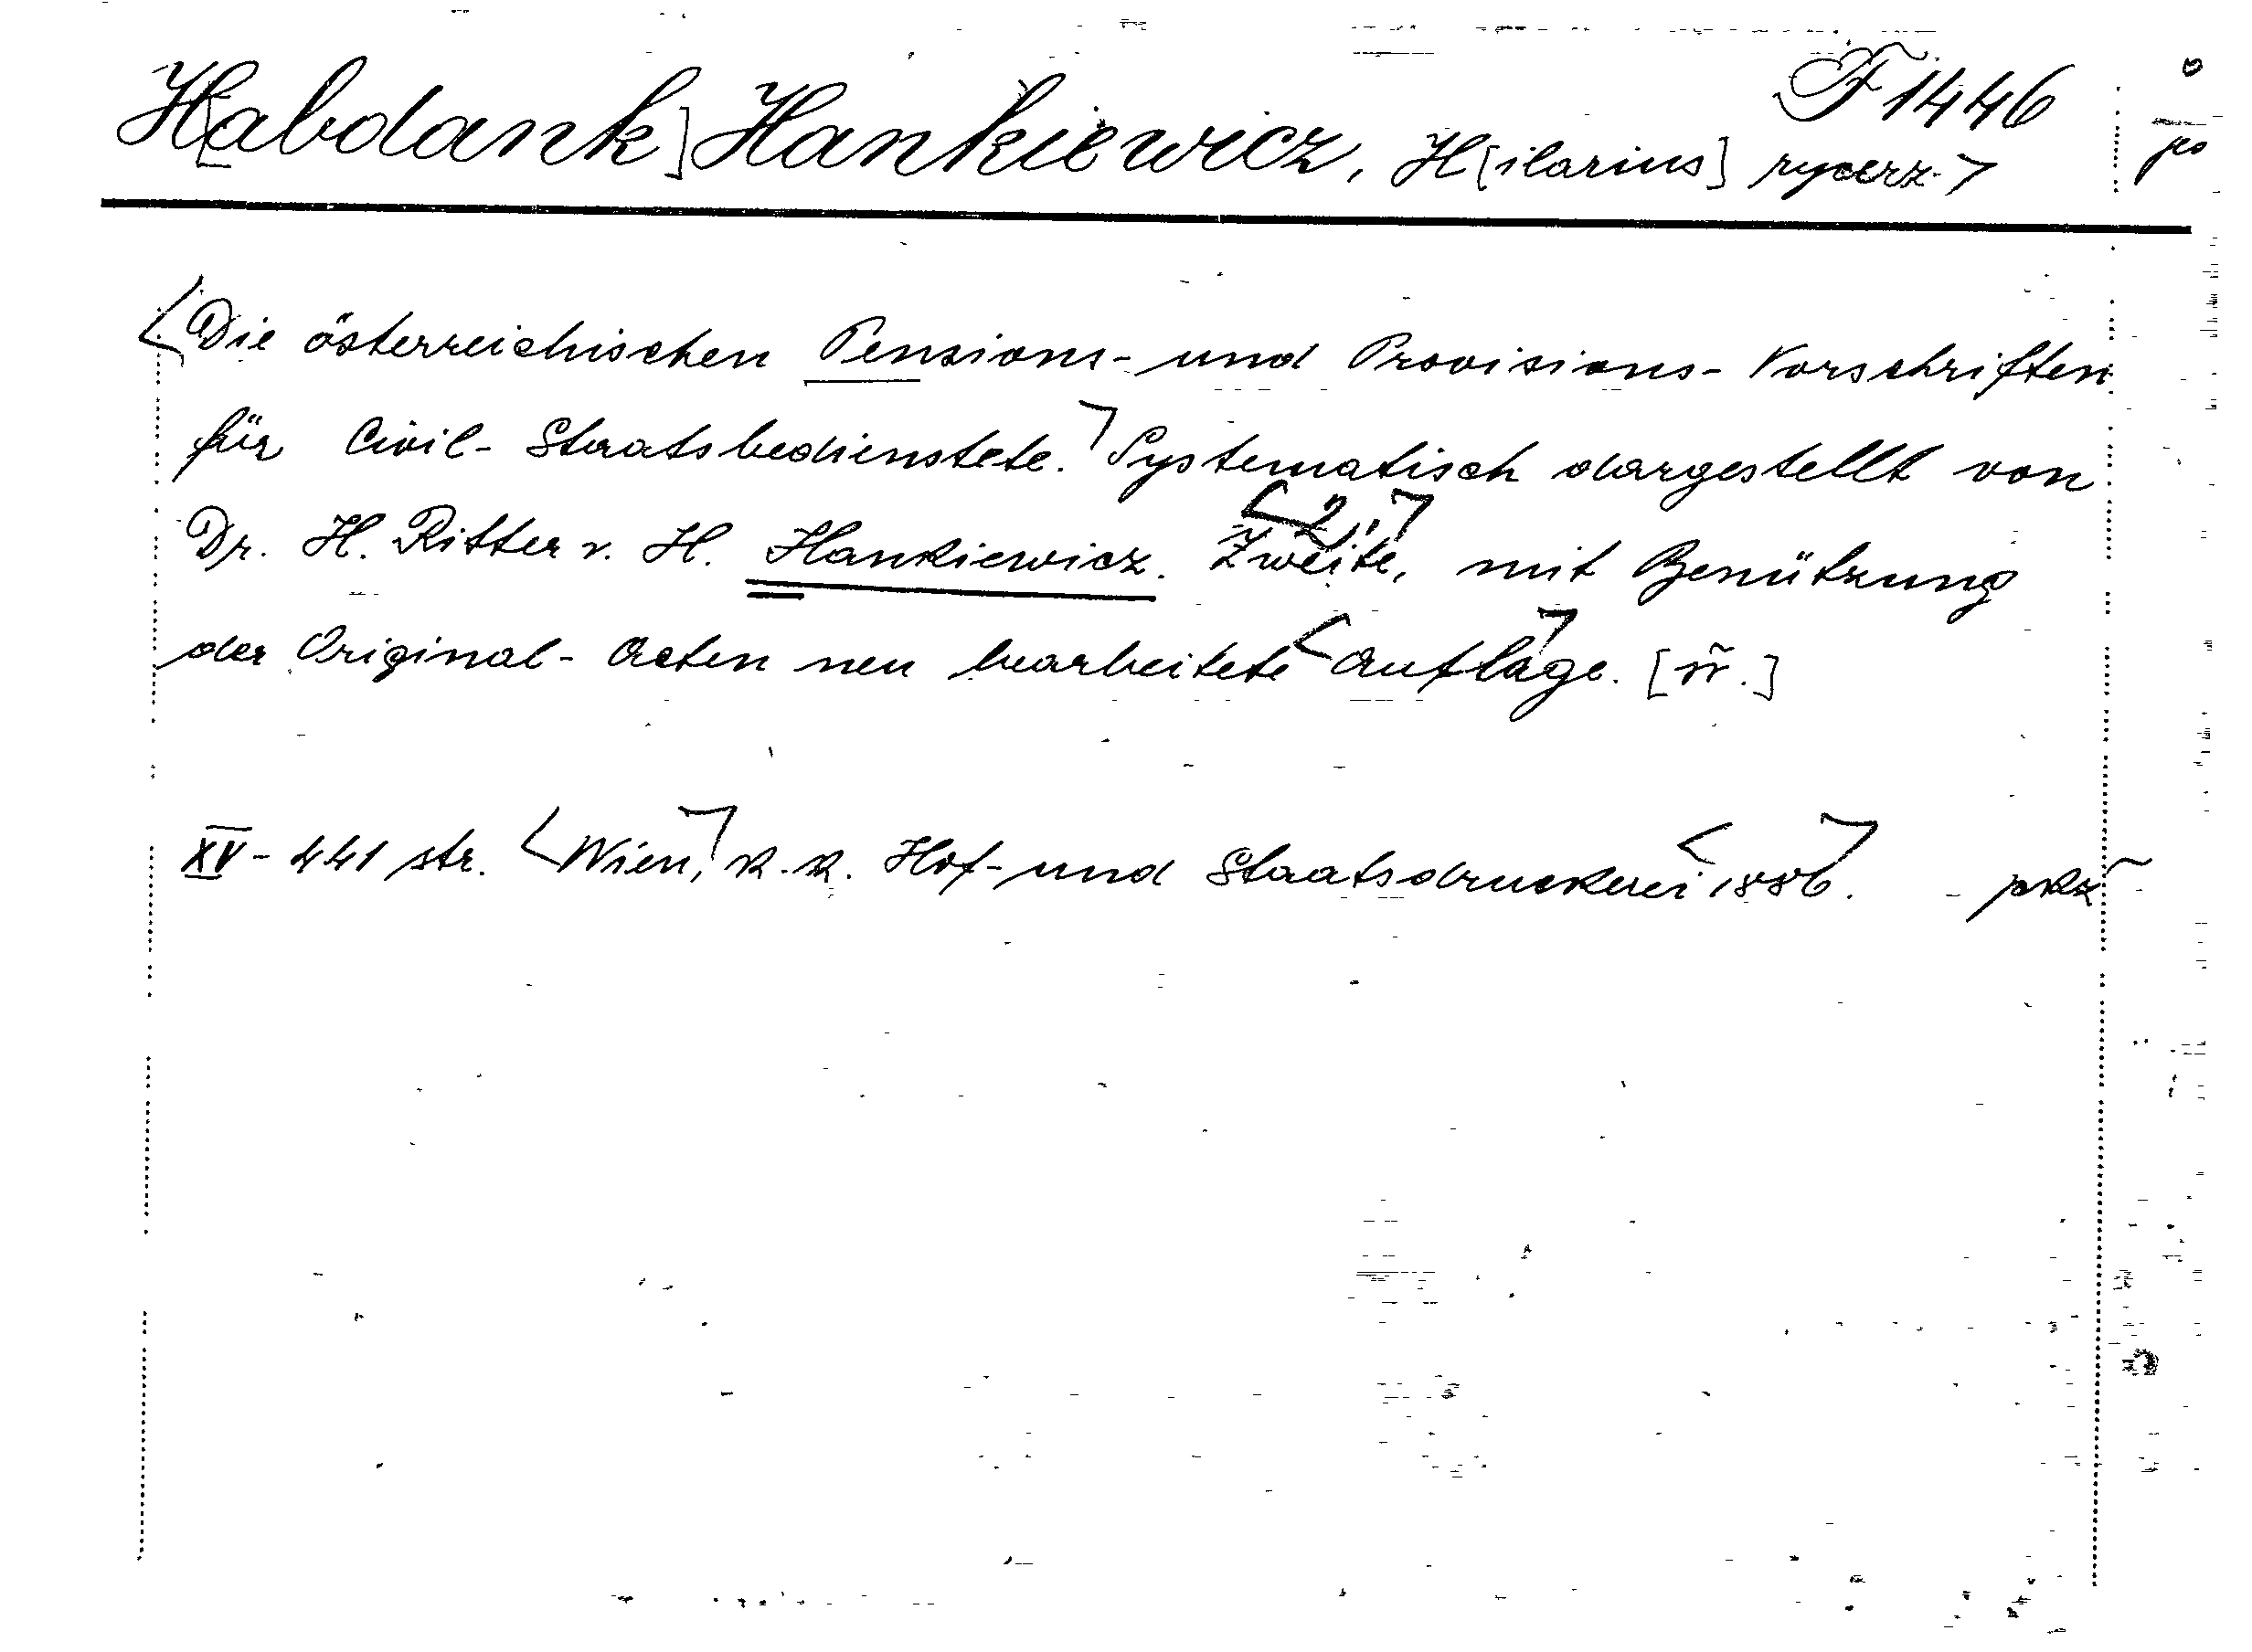 F 1446
H[abdank] Hankiewicz, H[ilarius] rycerz
Die österreichischen Pensions- und Provisions-Vorschriften
für Civil-Staatsbedienstete. Systematisch dargestellt von
Dr. H. Ritter v. H. Hankiewicz. Zweite, mit Benützung
2.
der Original-Acten neu bearbeitete Auflage.
XV-441 str. Wien, K.K. Hof- und Staatsdruckerei 1886. prz